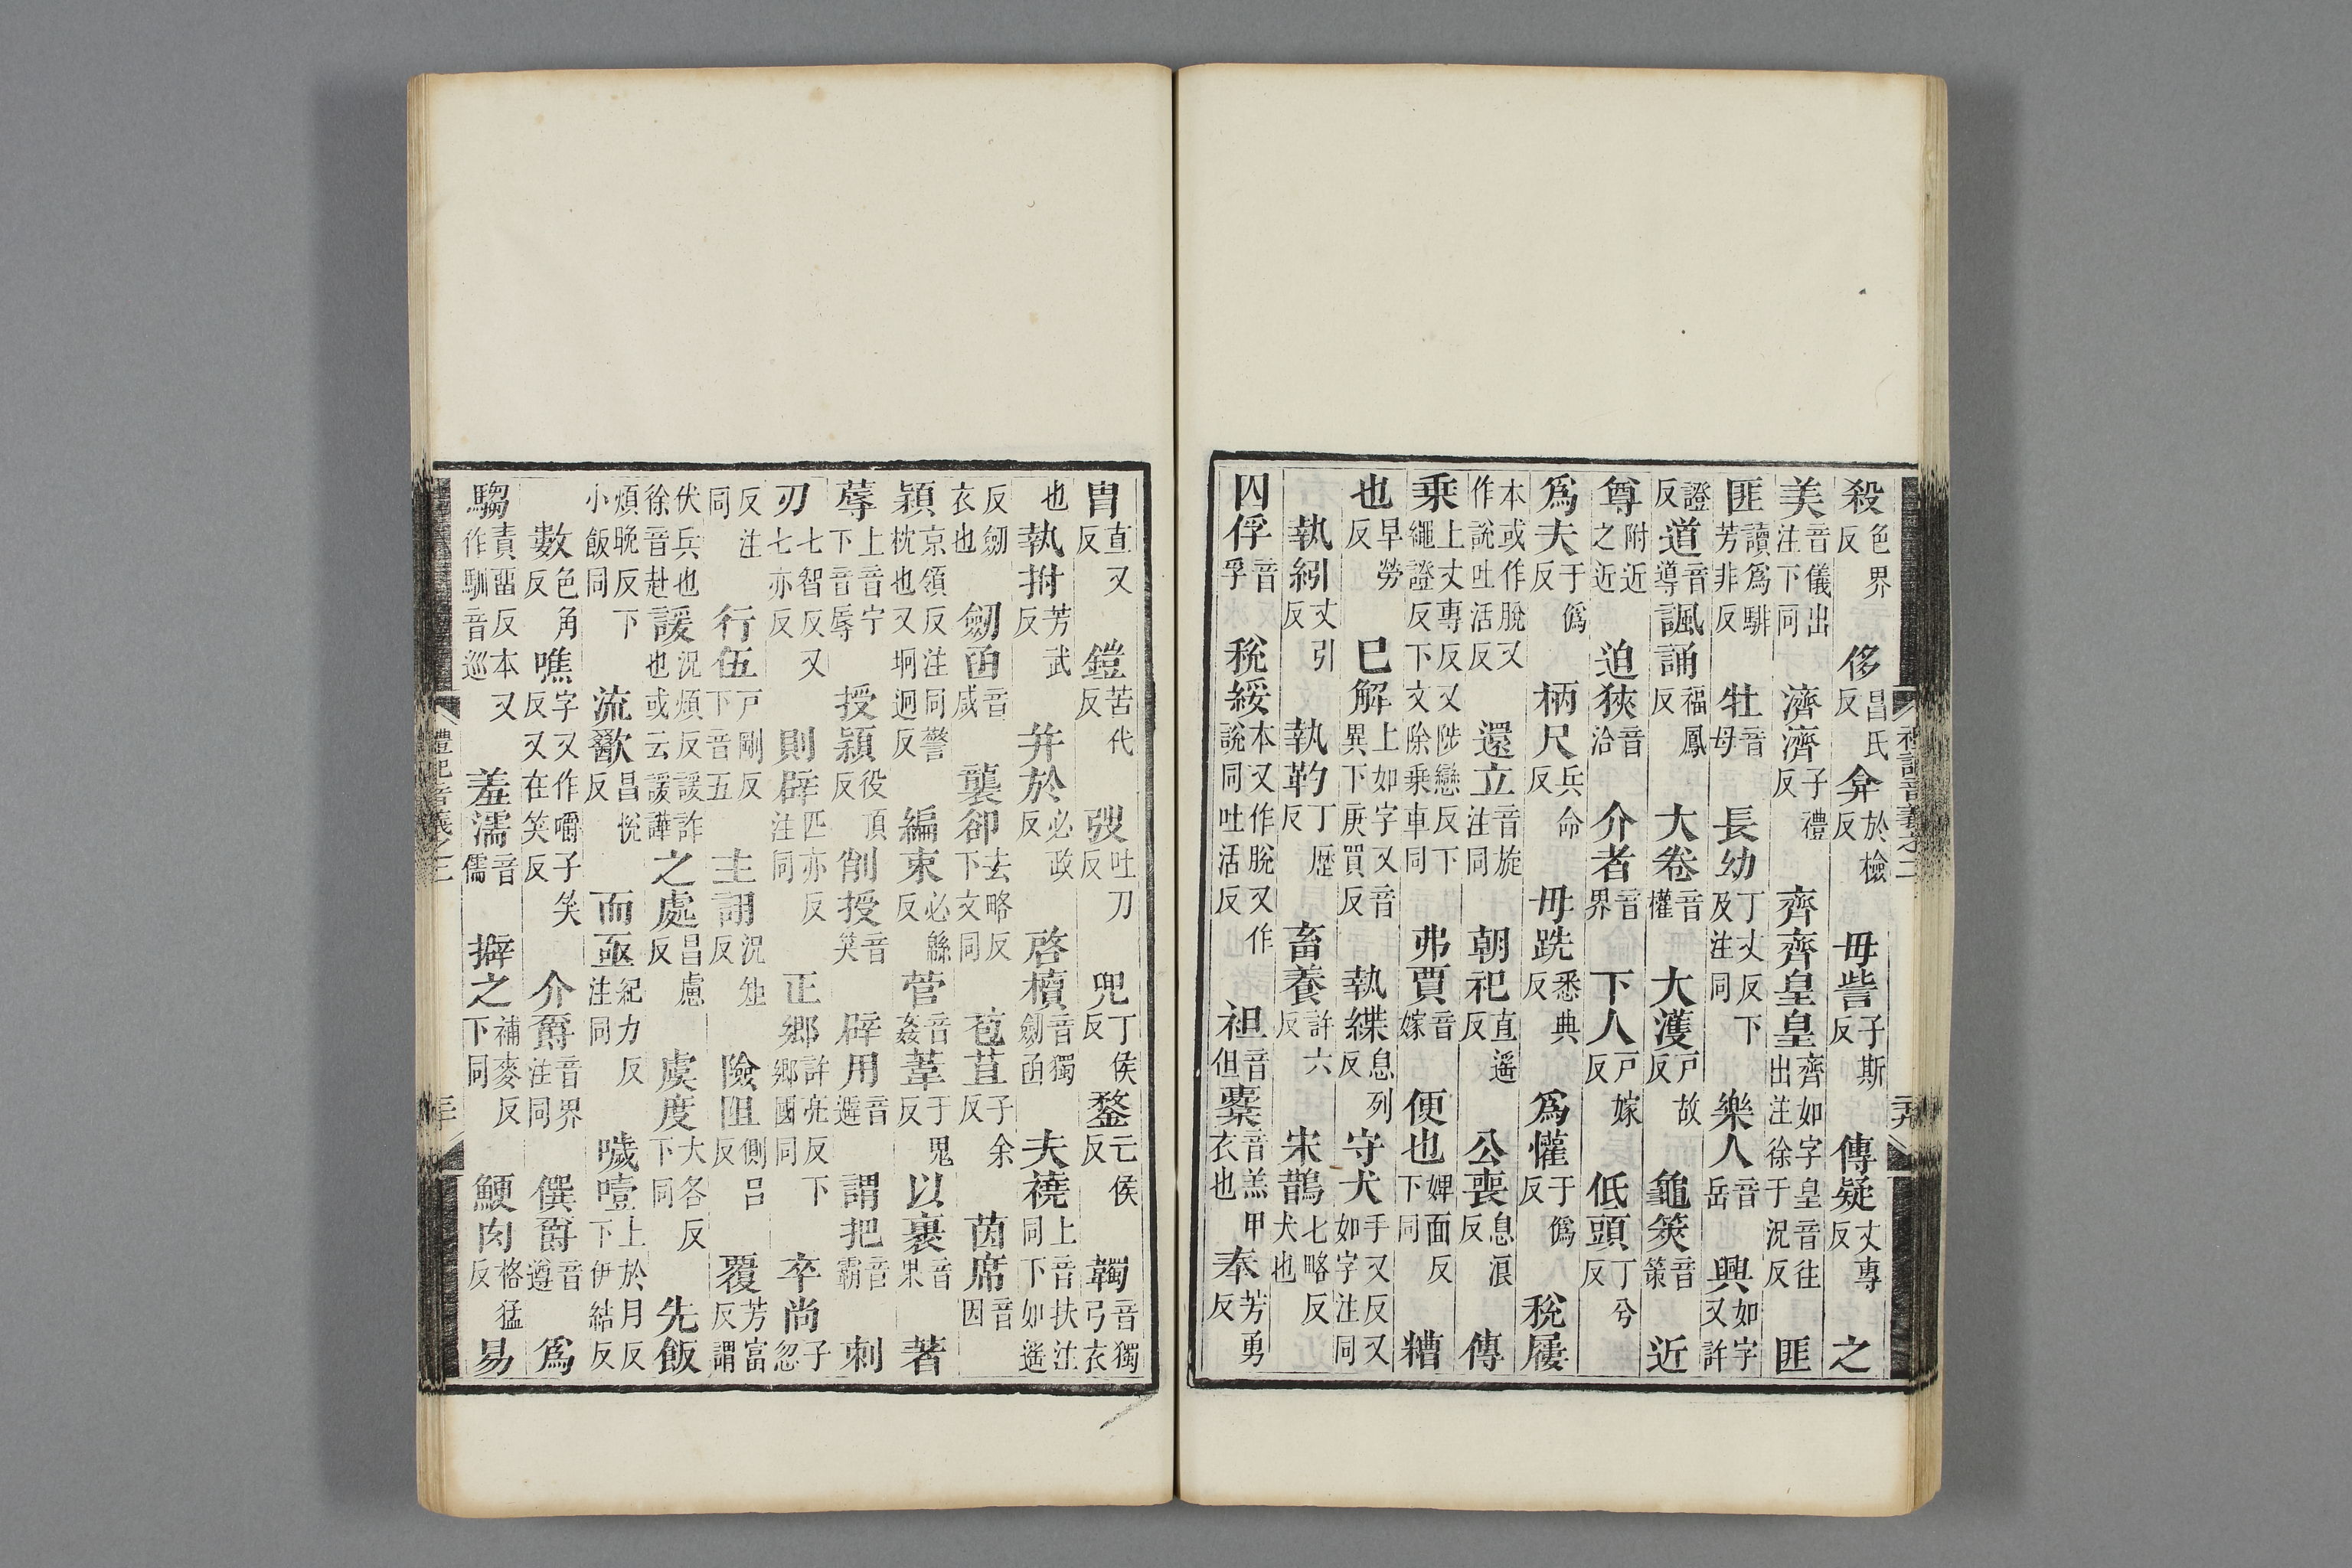 殺色界反侈昌氏反弇於檢反毋訾子斯反傳疑丈專反之
美音儀出注下同濟濟子禮反齊齊皇皇齊如字皇音往出注徐于況反匪
匪讀爲騑芳非反牡音母長幼丁丈反下及注同樂人音岳興如字又許
證反道音導諷誦福鳳反大卷音權大濩戶故反龜筴音策近
尊附近之近迫狹音洽介者音界下人戶嫁反低頭丁兮反
爲夫于僞反柄尺兵命反毋跣悉典反爲懽于僞反稅屨
本或作脫又作說吐活反還立音旋注同朝祀直遙反公喪息浪反傳
乘上丈專反又陟戀反下繩證反下文除乘車同弗賈音嫁便也婢面反下同糟
也早勞反已解上如字又音異下庚買反執緤息列反守犬手又反又如字注同
執紖丈引反執靮丁歷反畜養許六反宋鵲七略反犬也
囚俘音孚稅綏本又作脫又作說同吐活反袒音但櫜音羔甲衣也奉芳勇反
冑直又反鎧苦代反弢吐刀反兜丁侯反鍪亡侯反韣音獨弓衣
也執拊芳武反并於必政反啓櫝音獨劒函夫襓上音扶注同下如遙
反劒衣也劒函音咸襲卻去略反下文同苞苴子余反茵席音因
熲京領反注同警枕也又坰迥反編束必緜反菅音姦葦于鬼反以裹音果著
蓐上音宁下音辱授穎役頂反削授音笑辟用音避謂把音霸刺
刃七智反又七亦反則辟匹亦反注同正鄉許亮反下鄉國同卒尚子忽
反注同行伍戶剛反下音五主詡況矩反險阻側呂反覆芳富反謂
伏兵也徐音赴諼況煩反諼詐也或云諼譁之處昌慮反虞度大各反下同先飯
煩晚反下小飯同流歠昌悅反而亟紀力反注同噦噎上於月反下伊結反
數色角反噍字又作嚼子笑反又在笑反介爵音界注同僎爵音遵爲
騶責畱反本又作馴音巡羞濡音儒擗之補麥反下同鯁肉格猛反易